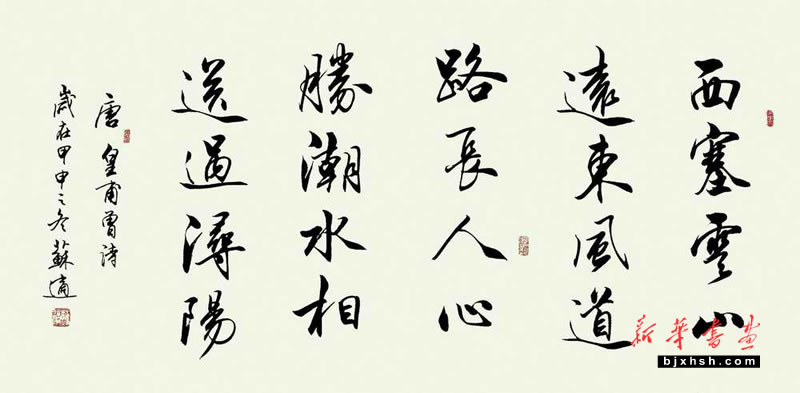 西塞雲山
遠東風道
路長人心
勝潮水相
送過潯陽
唐皇甫曾詩
歲在甲申之冬蘇適
新华书画
bjxhsh.com